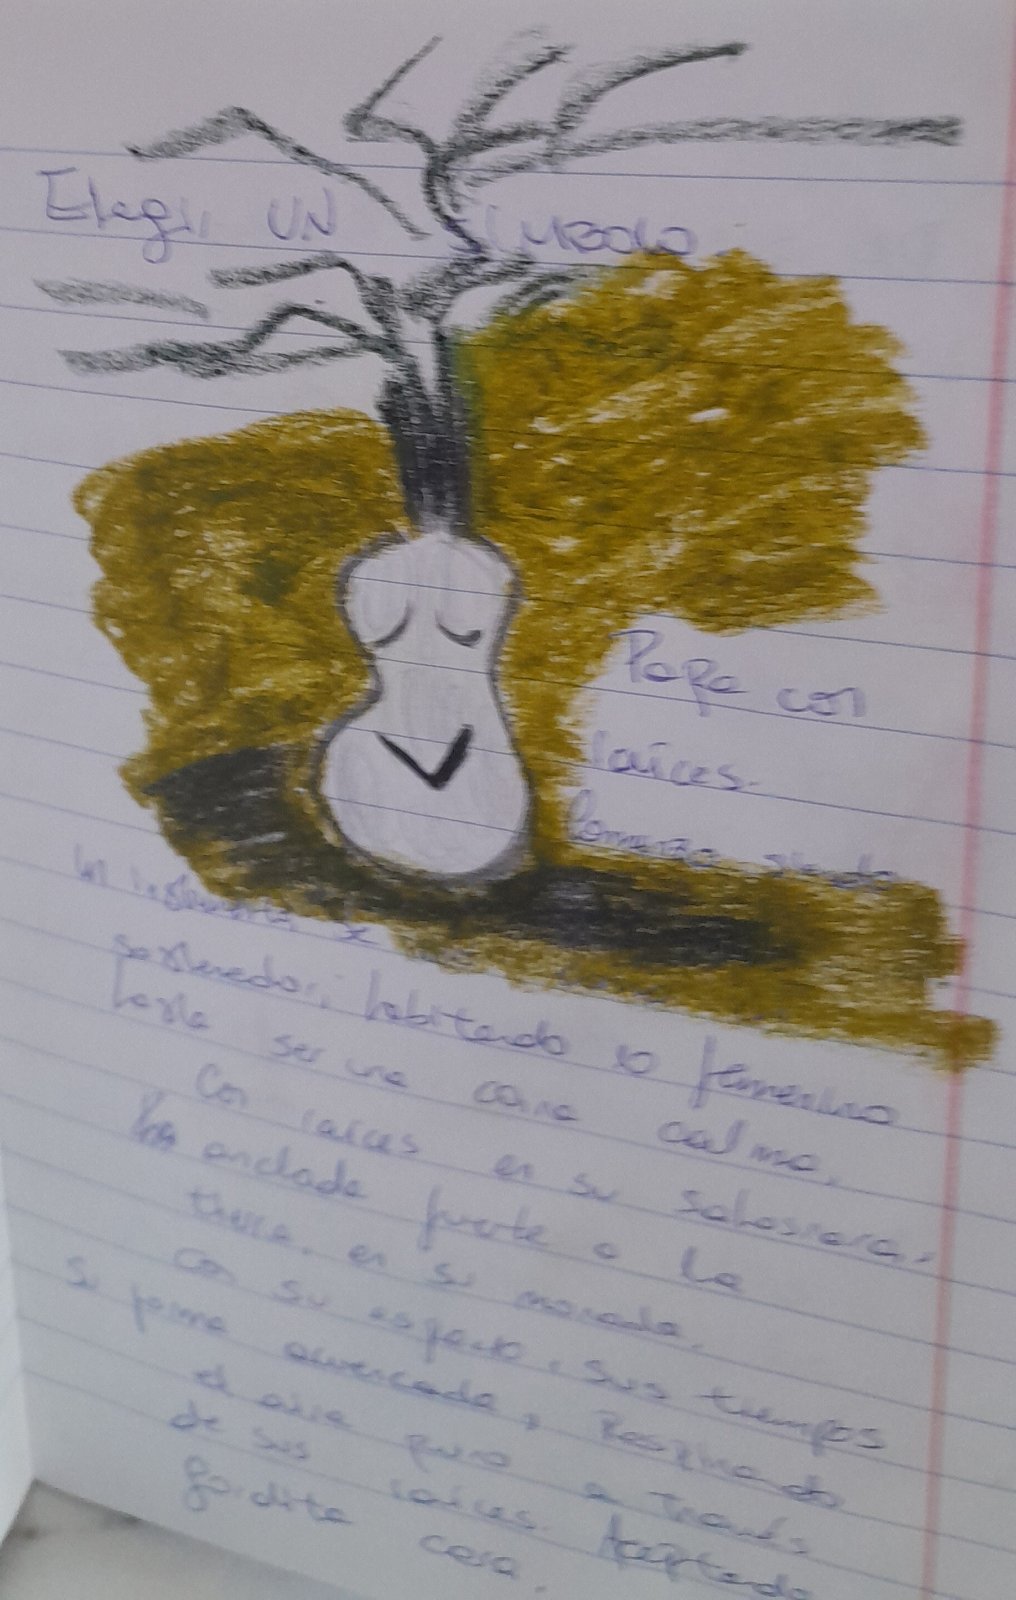 Elegir UN SIMBOLO.
Papa con
raíces.
Comenzo siendo
un instrumento, se
; habitando lo femenino
hasta ser una cara calma.
Con raíces en su
anclada fuerte a la
tierra, en su morada,
con su espacio, sus tiempos
Su forma ahuecada, Respirando
el aire puro a través
de sus raíces. Aceptando
gordita cara.